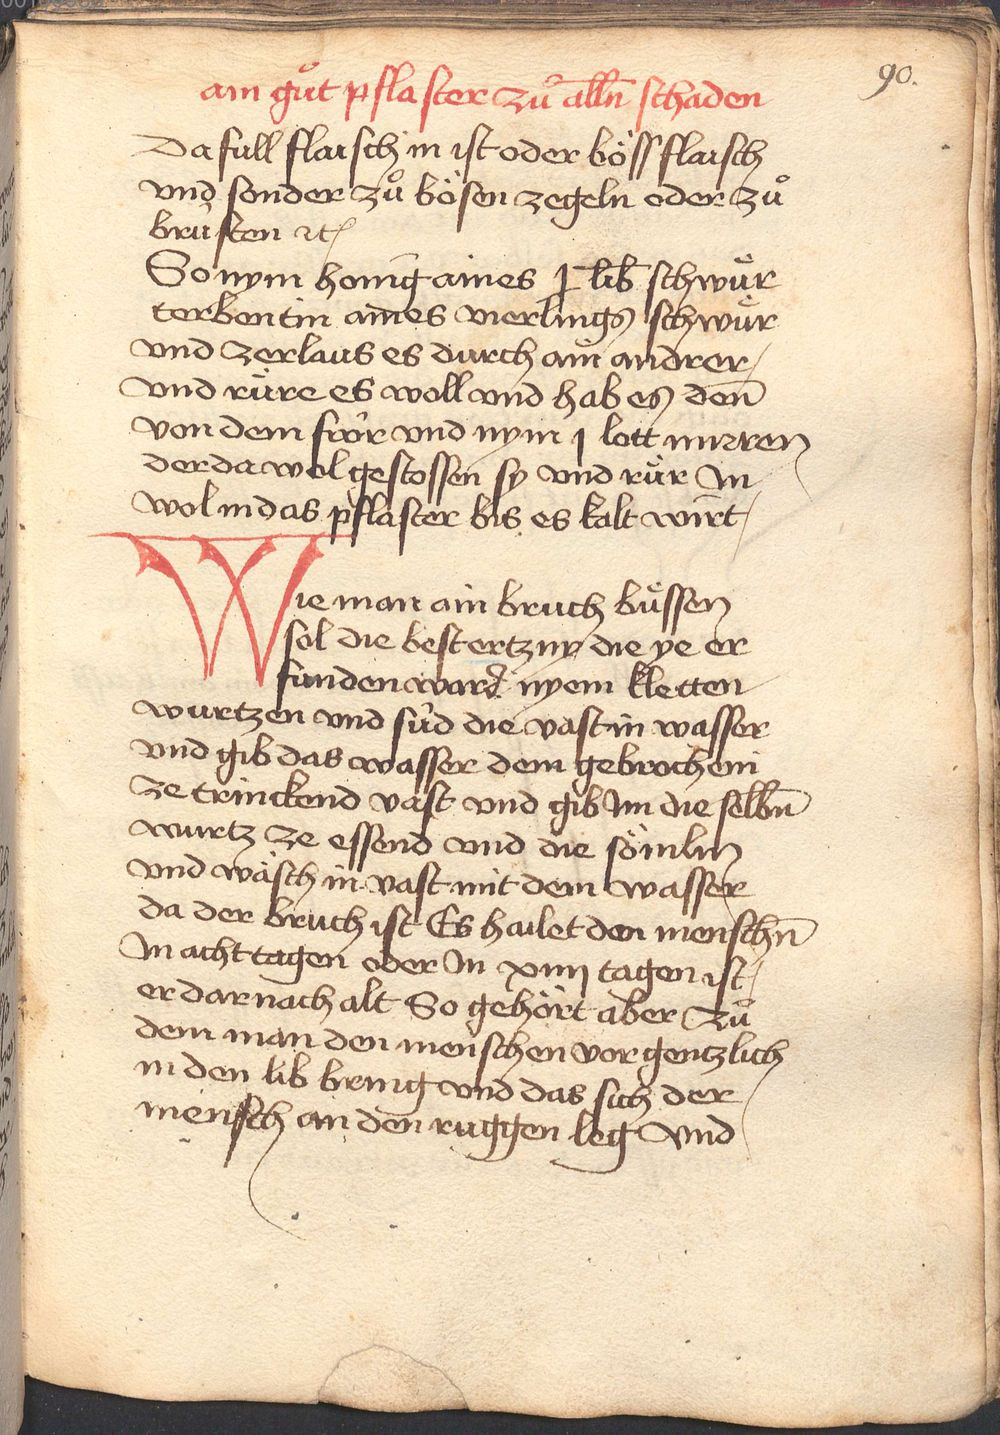 90.
ain gůt pflaster zů alln̄ schaden
Da full flaisch in ist oder böss flaisch
vnd sonder zů bösen zegeln oder zů
brüsten ꝛc
So nym honīg aines j lib schwär
terbentin aines vierlings schwär
vnd zerlaus es durch ain andrer
vnd rüre es woll vnd hab es den̄
von dem für vnd nym j lott mirren
der da wol gestossen sy vnd rür In
wol in das pflaster bis es kalt wirt
Wie man ain bruch büssen
sol die best ertzny die ye er
funden ward nyem kletten
wurtzen vnd süd die vast in wasser
vnd gib das wasser dem gebrochein
ze trinckend vast vnd gib Im die selbn̄
wurtz ze essend vnd die sömlin
vnd wäsch in vast mit dem wasser
da der bruch ist Es hailet den menschn̄
In acht tagen oder In xiiij tagen ist
er darnach alt So gehört aber zů
dem man den menschen vor gentzlich
in den lib bring vnd das sich der
mensch an den ruggen leg vnd